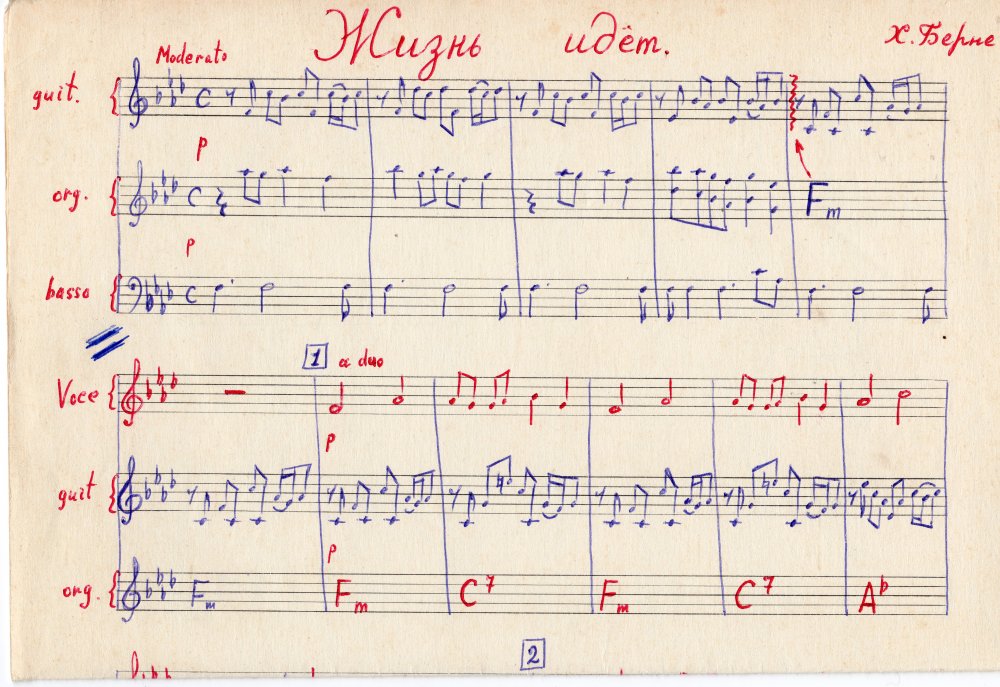 Жизнь идёт.
Х. Берне
Moderato
guit.
C
p
org.
C
Fm
p
basso
C
1 a duo
Voce
p
guit
p
org.
Fm Fm C7 Fm C7 Ab
2